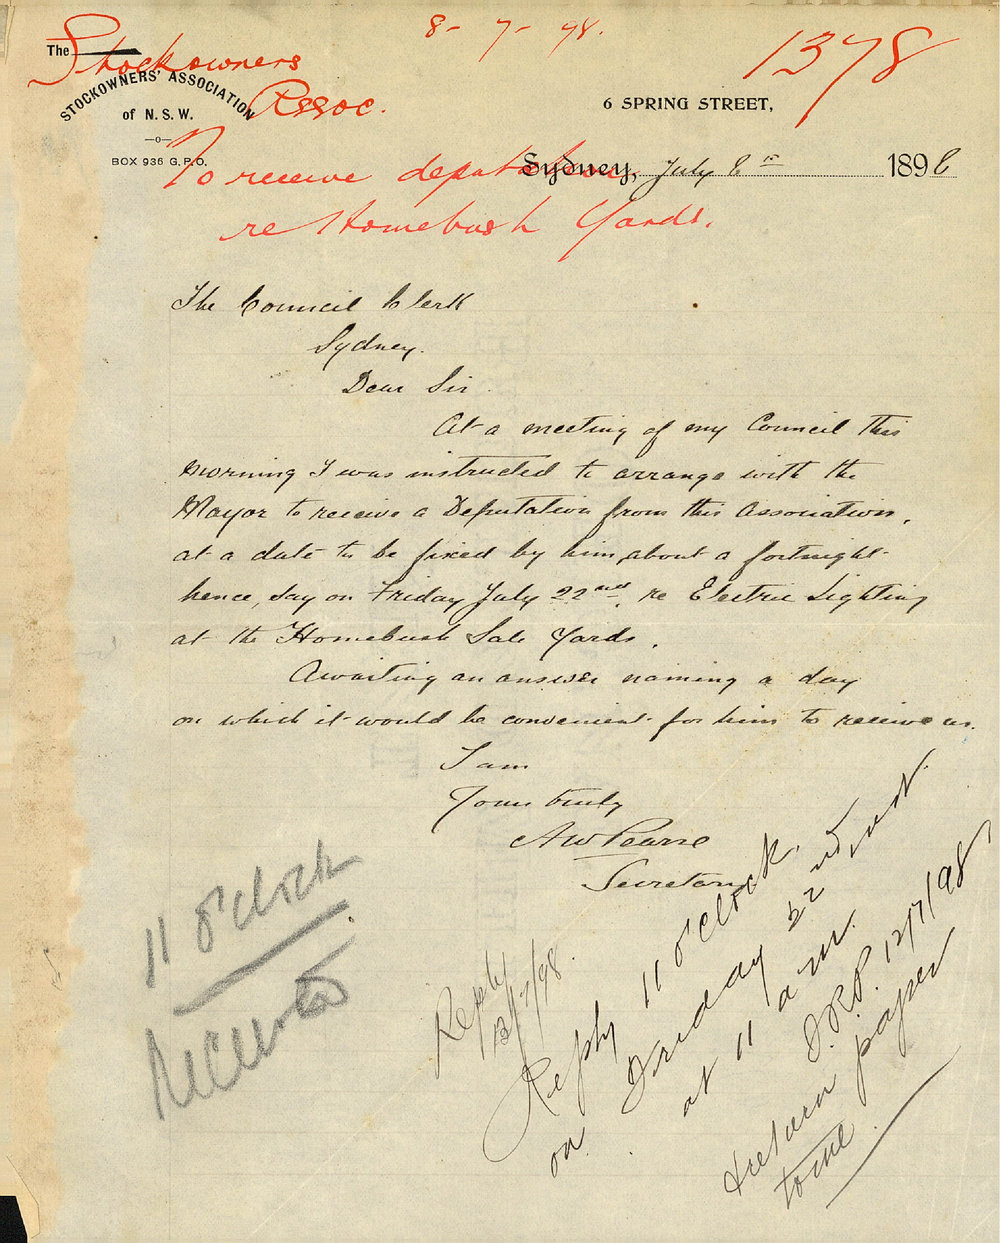 8-7-98.
1378
Stockowners
Assoc.
To receive deputation
re Homebush Yards.
The
STOCKOWNERS' ASSOCIATION
of N. S. W.
BOX 936 G.P.O.
6 SPRING STREET,
Sydney, July 8th 1898
The Council Clerk
Sydney.
Dear Sir
At a meeting of my Council this
morning I was instructed to arrange with the
Mayor to receive a Deputation from this Association,
at a date to be fixed by him, about a fortnight
hence, say on Friday July 22nd, re Electric Lighting
at the Homebush Sale Yards.
Awaiting an answer naming a day
on which it would be convenient for him to receive us.
I am
Yours truly
A W Pearse
Secretary
11 o'clock
Reply
13/7/98.
Reply 11 o'clock.
on Friday 22nd inst.
at 11 a.m.
12/7/98
return paper
to me.